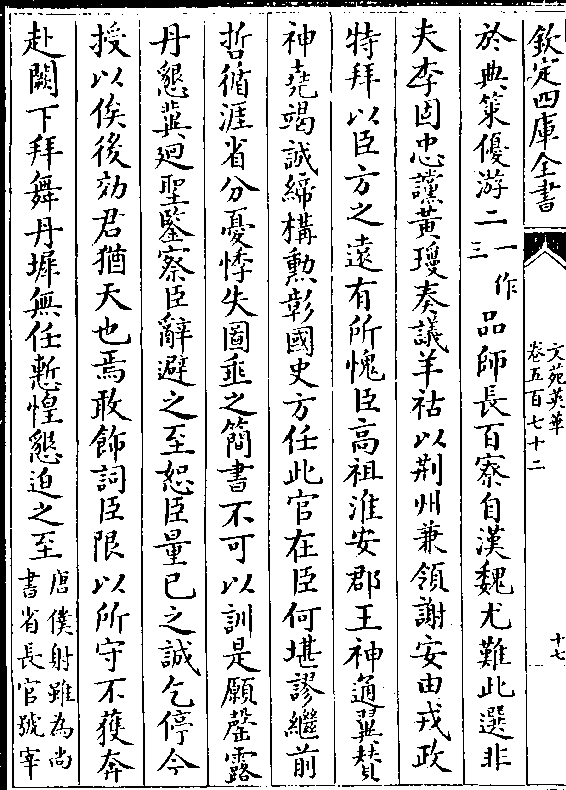 欽定四庫全書
文苑英華
卷五百七十二
十七
於典策優游二一作三品師長百寮自漢魏尤難此選非
夫李固忠讜黃瓊奏議羊祜以荆州兼領謝安由戎政
特拜以臣方之逺有所愧臣髙祖淮安郡王神通翼賛
神堯竭誠締構勲彰國史方任此官在臣何堪謬繼前
哲循涯省分憂悸失圖垂之簡書不可以訓是願罄露
丹懇冀廻聖鑒察臣辭避之至恕臣量已之誠乞停今
授以俟後効君猶天也焉敢飾詞臣限以所守不獲奔
赴闕下拜舞丹墀無任慙惶懇迫之至唐僕射雖為尚
書省長官號宰